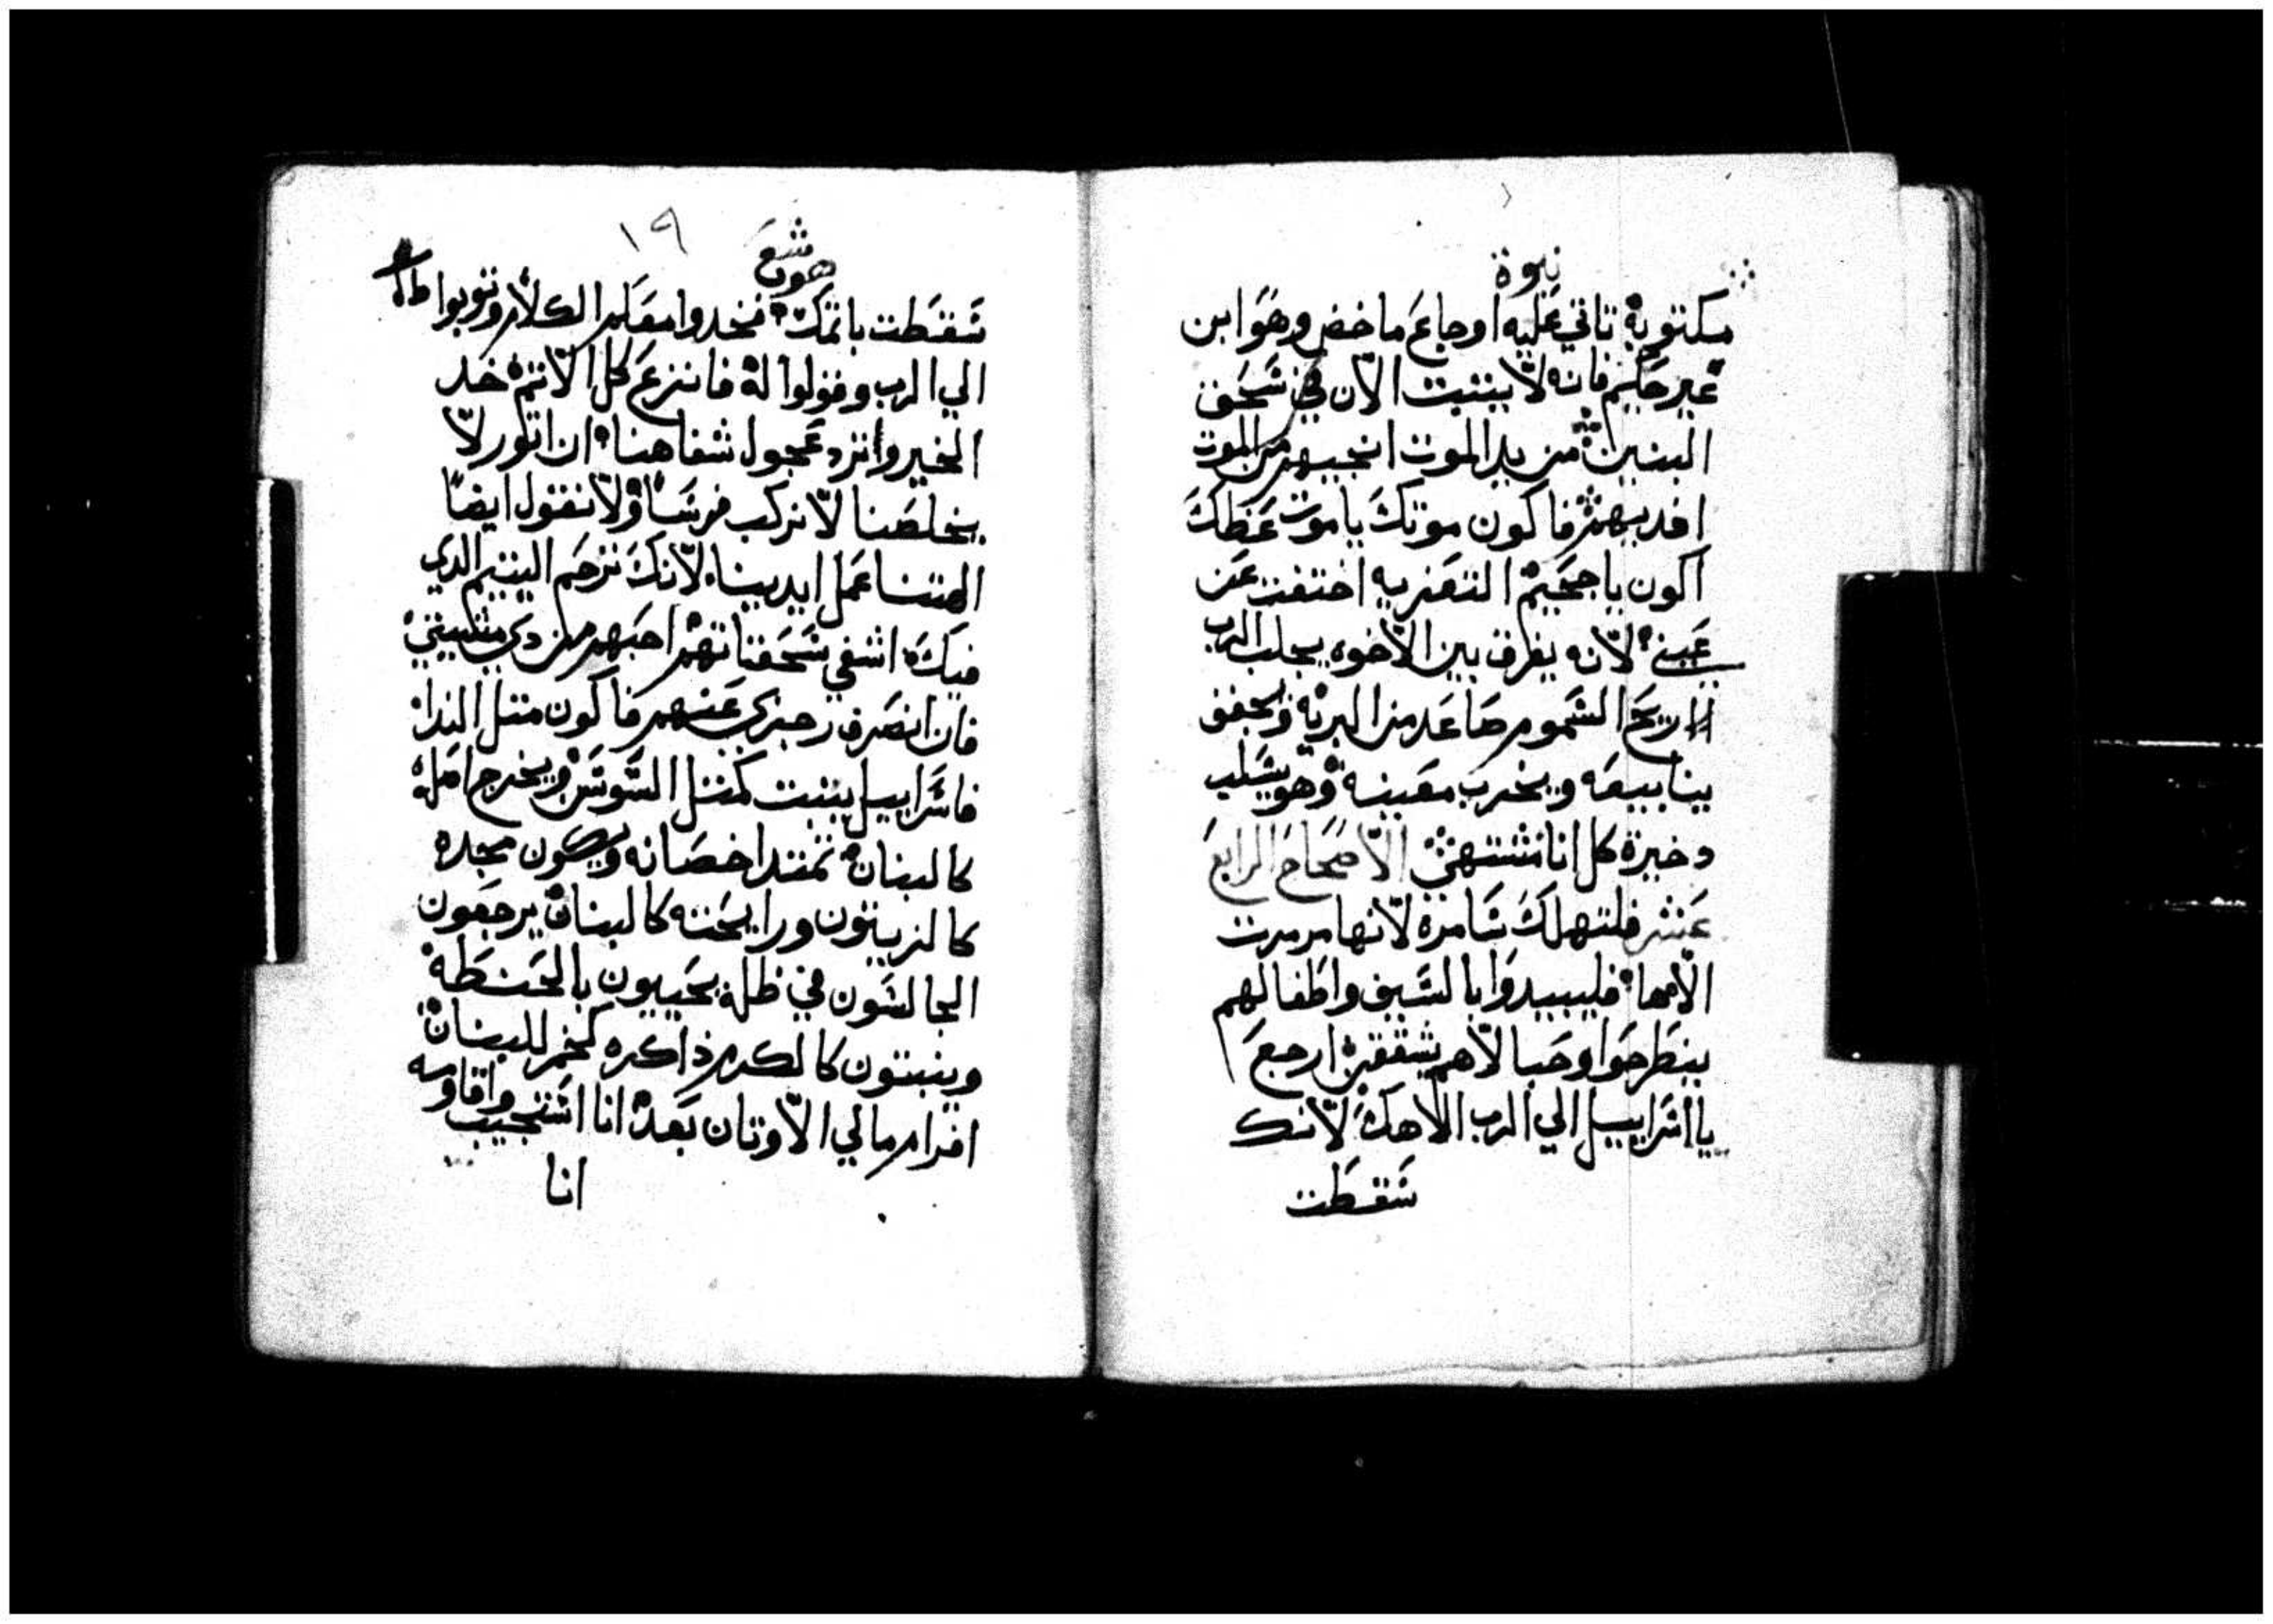 نبوة
مكتوبة تاتي عليه اوجاع ماخض وهو ابن
غير حكيم فانه لا يتبت الان في سحق
البنين من يد الموت انجيهم من الموت
افديهم فاكون موتك يا موت عظك
اكون يا جحيم التعزيه اختفت عن
عيني لانه يفرق بين الاخوه يجلب الرب
الريح السموم صاعد من البرية ويجفف
ينابيعه ويخرب معينه وهو يسلب
دخيرة كل انا مشتهي الاصحاح الرابع
عشر فلتهلك سامرة لانها مرمرت
الاهها فليبيدوا بالسيف واطفالهم
ينطرحوا وحبالاهم يشققن ارجع
يا اسراييل الي الرب الاهك لانك
سقطت
هوشع
١٩
سقطت باتمك فخدوا معكم الكلام وتوبوا
الي الرب وقولوا له فانزع كل الاتم خد
الخير وانرد عجول شفاهنا ان اتور لا
يخلصنا لا نركب فرسا ولا نقول ايضا
الهتنا عمل ايدينا لانك ترحم اليتيم الدي
فيك اشفي سحقتاتهم احبهم من دي مشيتي
فان انصرف رجزي عنهم فاكون متل الندا
فاسراييل ينبت كمتل السوسن ويخرج اصله
كالبنان تمتد اخصانه ويكون مجده
كالزيتون ورايحته كالبنان يرجعون
الجالسون في ظله يحييون بالحنطة
وينبتون كالكرم ذاكره كخمر للبنان
افرام مالي الاوتان بعد انا استجيب واقاومه
انا